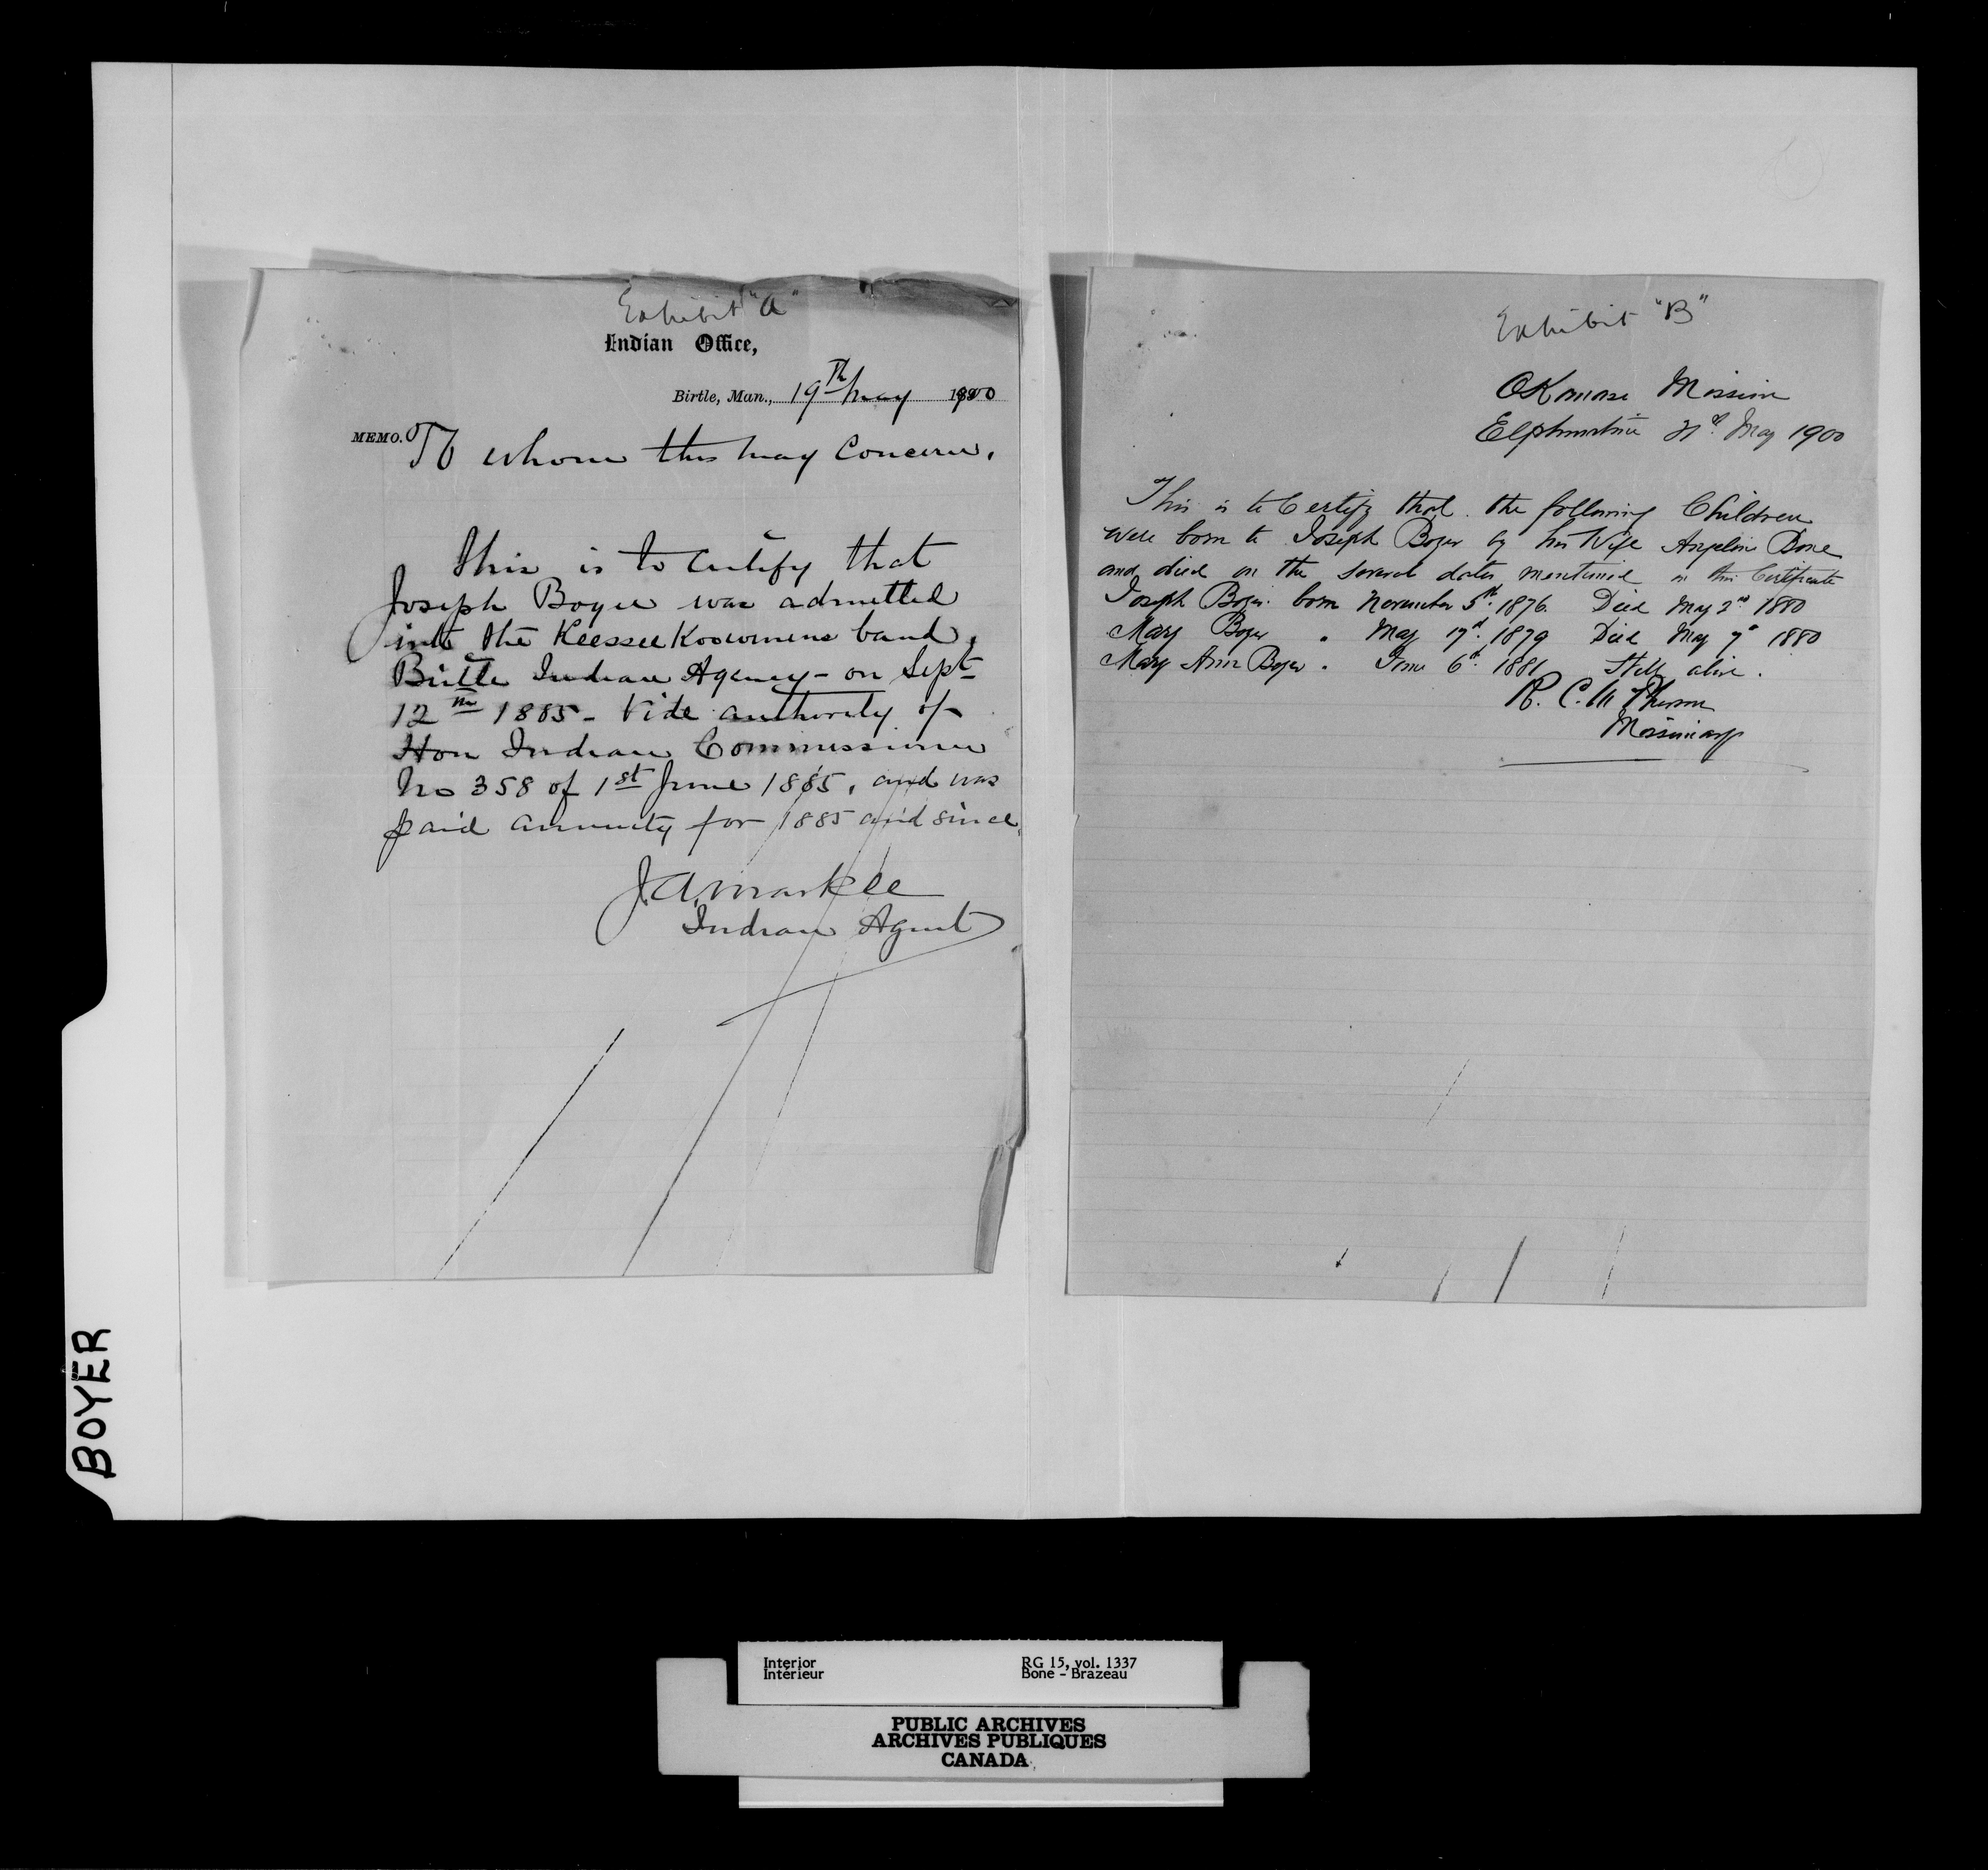 Exhibit "A"
Indian Office,
Birtle, Man., 19th May 1900
MEMO. To whom this may Concern.
This is to Certify that
Joseph Boyer was admitted
into the Keesseekoowenins band,
Birtle Indian Agency - on Sept
12th 1885 - Vide authority of
Hon Indian Commissioner
No 358 of 1st June 1885, and was
paid annuity for 1885 and since.
J.A. Markle
Indian Agent
Exhibit "B"
OKanase Mission
Elphinstone 21st May 1900
This is to Certify that the following Children
were born to Joseph Boyer by his Wife Angelin Bone
and died on the several dates mentioned in this Certificate
Joseph Boyer born November 5th 1876. Died May 2nd 1880
Mary Boyer " May 17th 1879 Died May 7th 1880
Mary Ann Boyer " June 6th 1881 Still alive.
R. C. McPherson
Missionary
BOYER
Interior
Intérieur
RG 15, vol. 1337
Bone - Brazeau
PUBLIC ARCHIVES
ARCHIVES PUBLIQUES
CANADA